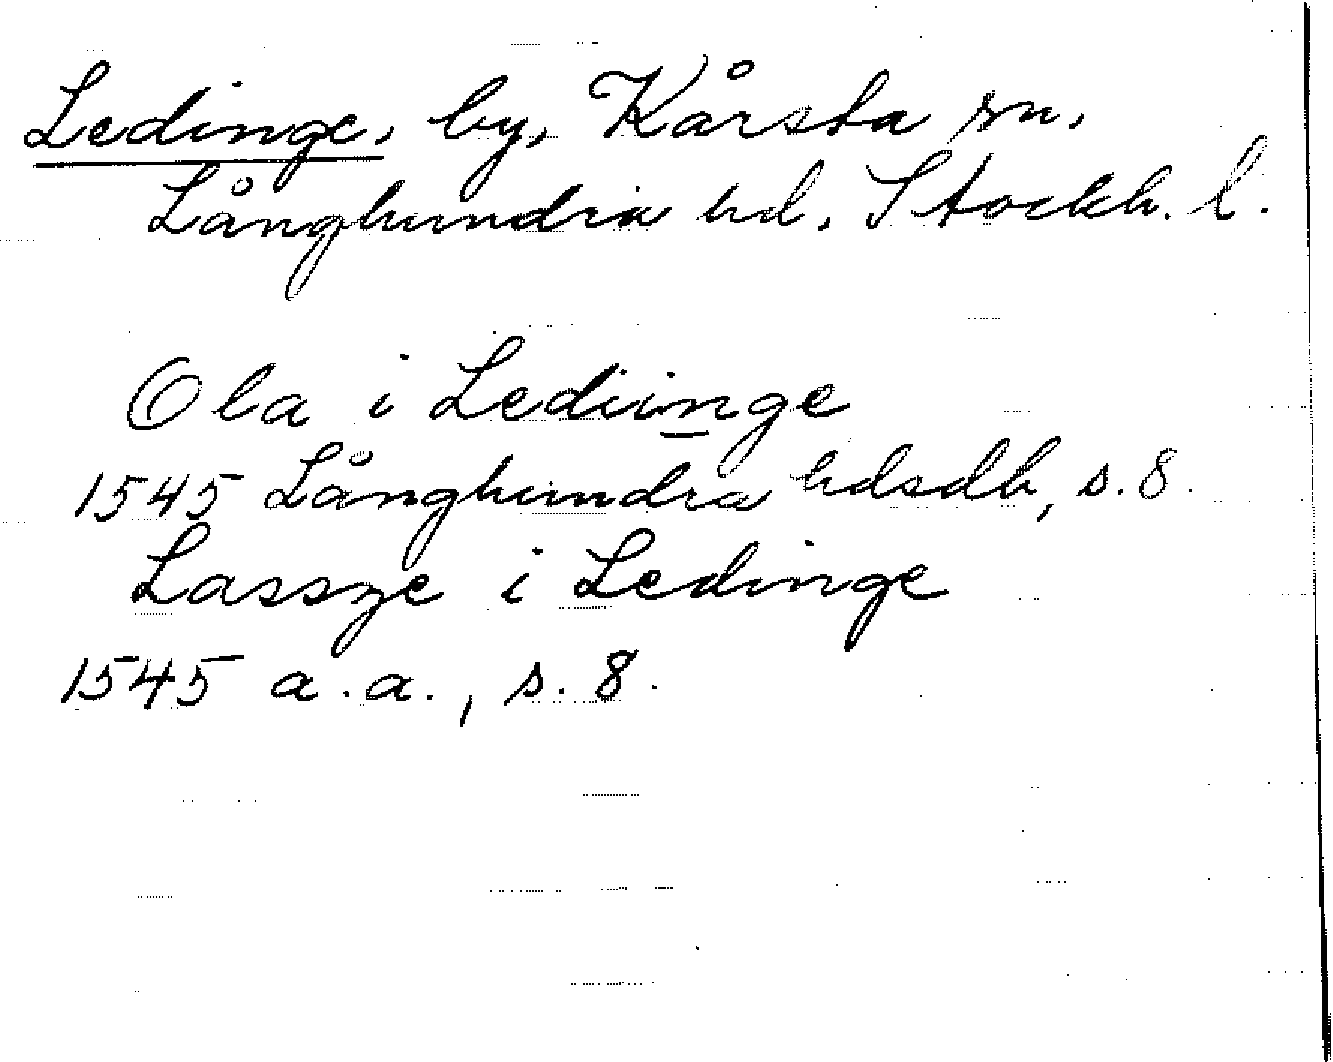 Ledinge, by, Kårsta sn,
Långhundra hd, Stockh. l.
Ola i Lediinge
1545 Långhundra hdsdb, s. 8.
Lassze i Ledinge
1545 a.a., s. 8.